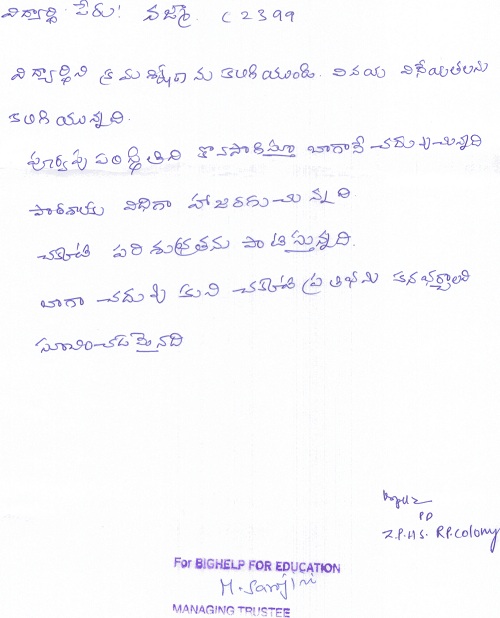 విద్యార్థి పేరు: నజ్మా. C 2399
విద్యార్థిని క్రమశిక్షణను కలిగియుండి. వినయ విధేయతలను
కలిగియున్నది.
పూర్వపు పరిస్థితిని కొనసాగిస్తూ బాగానే చదువుచున్నది
పాఠశాలకు విధిగా హాజరగుచున్నది
చక్కటి పరిశుభ్రతను పాటిస్తున్నది.
బాగా చదువుకుని చక్కటి ప్రతిభను కనబర్చాలని
సూచించడమైనది
PD
Z.P.H.S. R.P.Colony
For BIGHELP FOR EDUCATION
M. Sarojini
MANAGING TRUSTEE